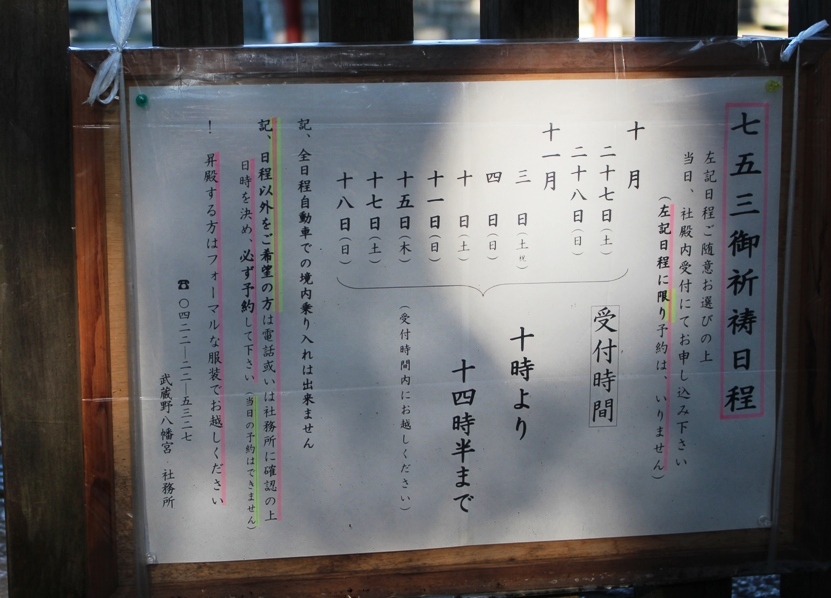 七五三御祈祷日程
左記日程ご随意お選びの上
当日、社殿内受付にてお申し込み下さい
(左記日程に限り予約は、いりません)
十月
二十七日(土)
二十八日(日)
十一月
三日(土祝)
四日(日)
十日(土)
十一日(日)
十五日(木)
十七日(土)
十八日(日)
受付時間
十時より
十四時半まで
(受付時間内にお越しください)
記、全日程自動車での境内乗り入れは出来ません
記、日程以外をご希望の方は電話或いは社務所に確認の上
日時を決め、必ず予約して下さい(当日の予約はできません)
! 昇殿する方はフォーマルな服装でお越しください
☎〇四二二―二二―五三二七
武蔵野八幡宮 社務所